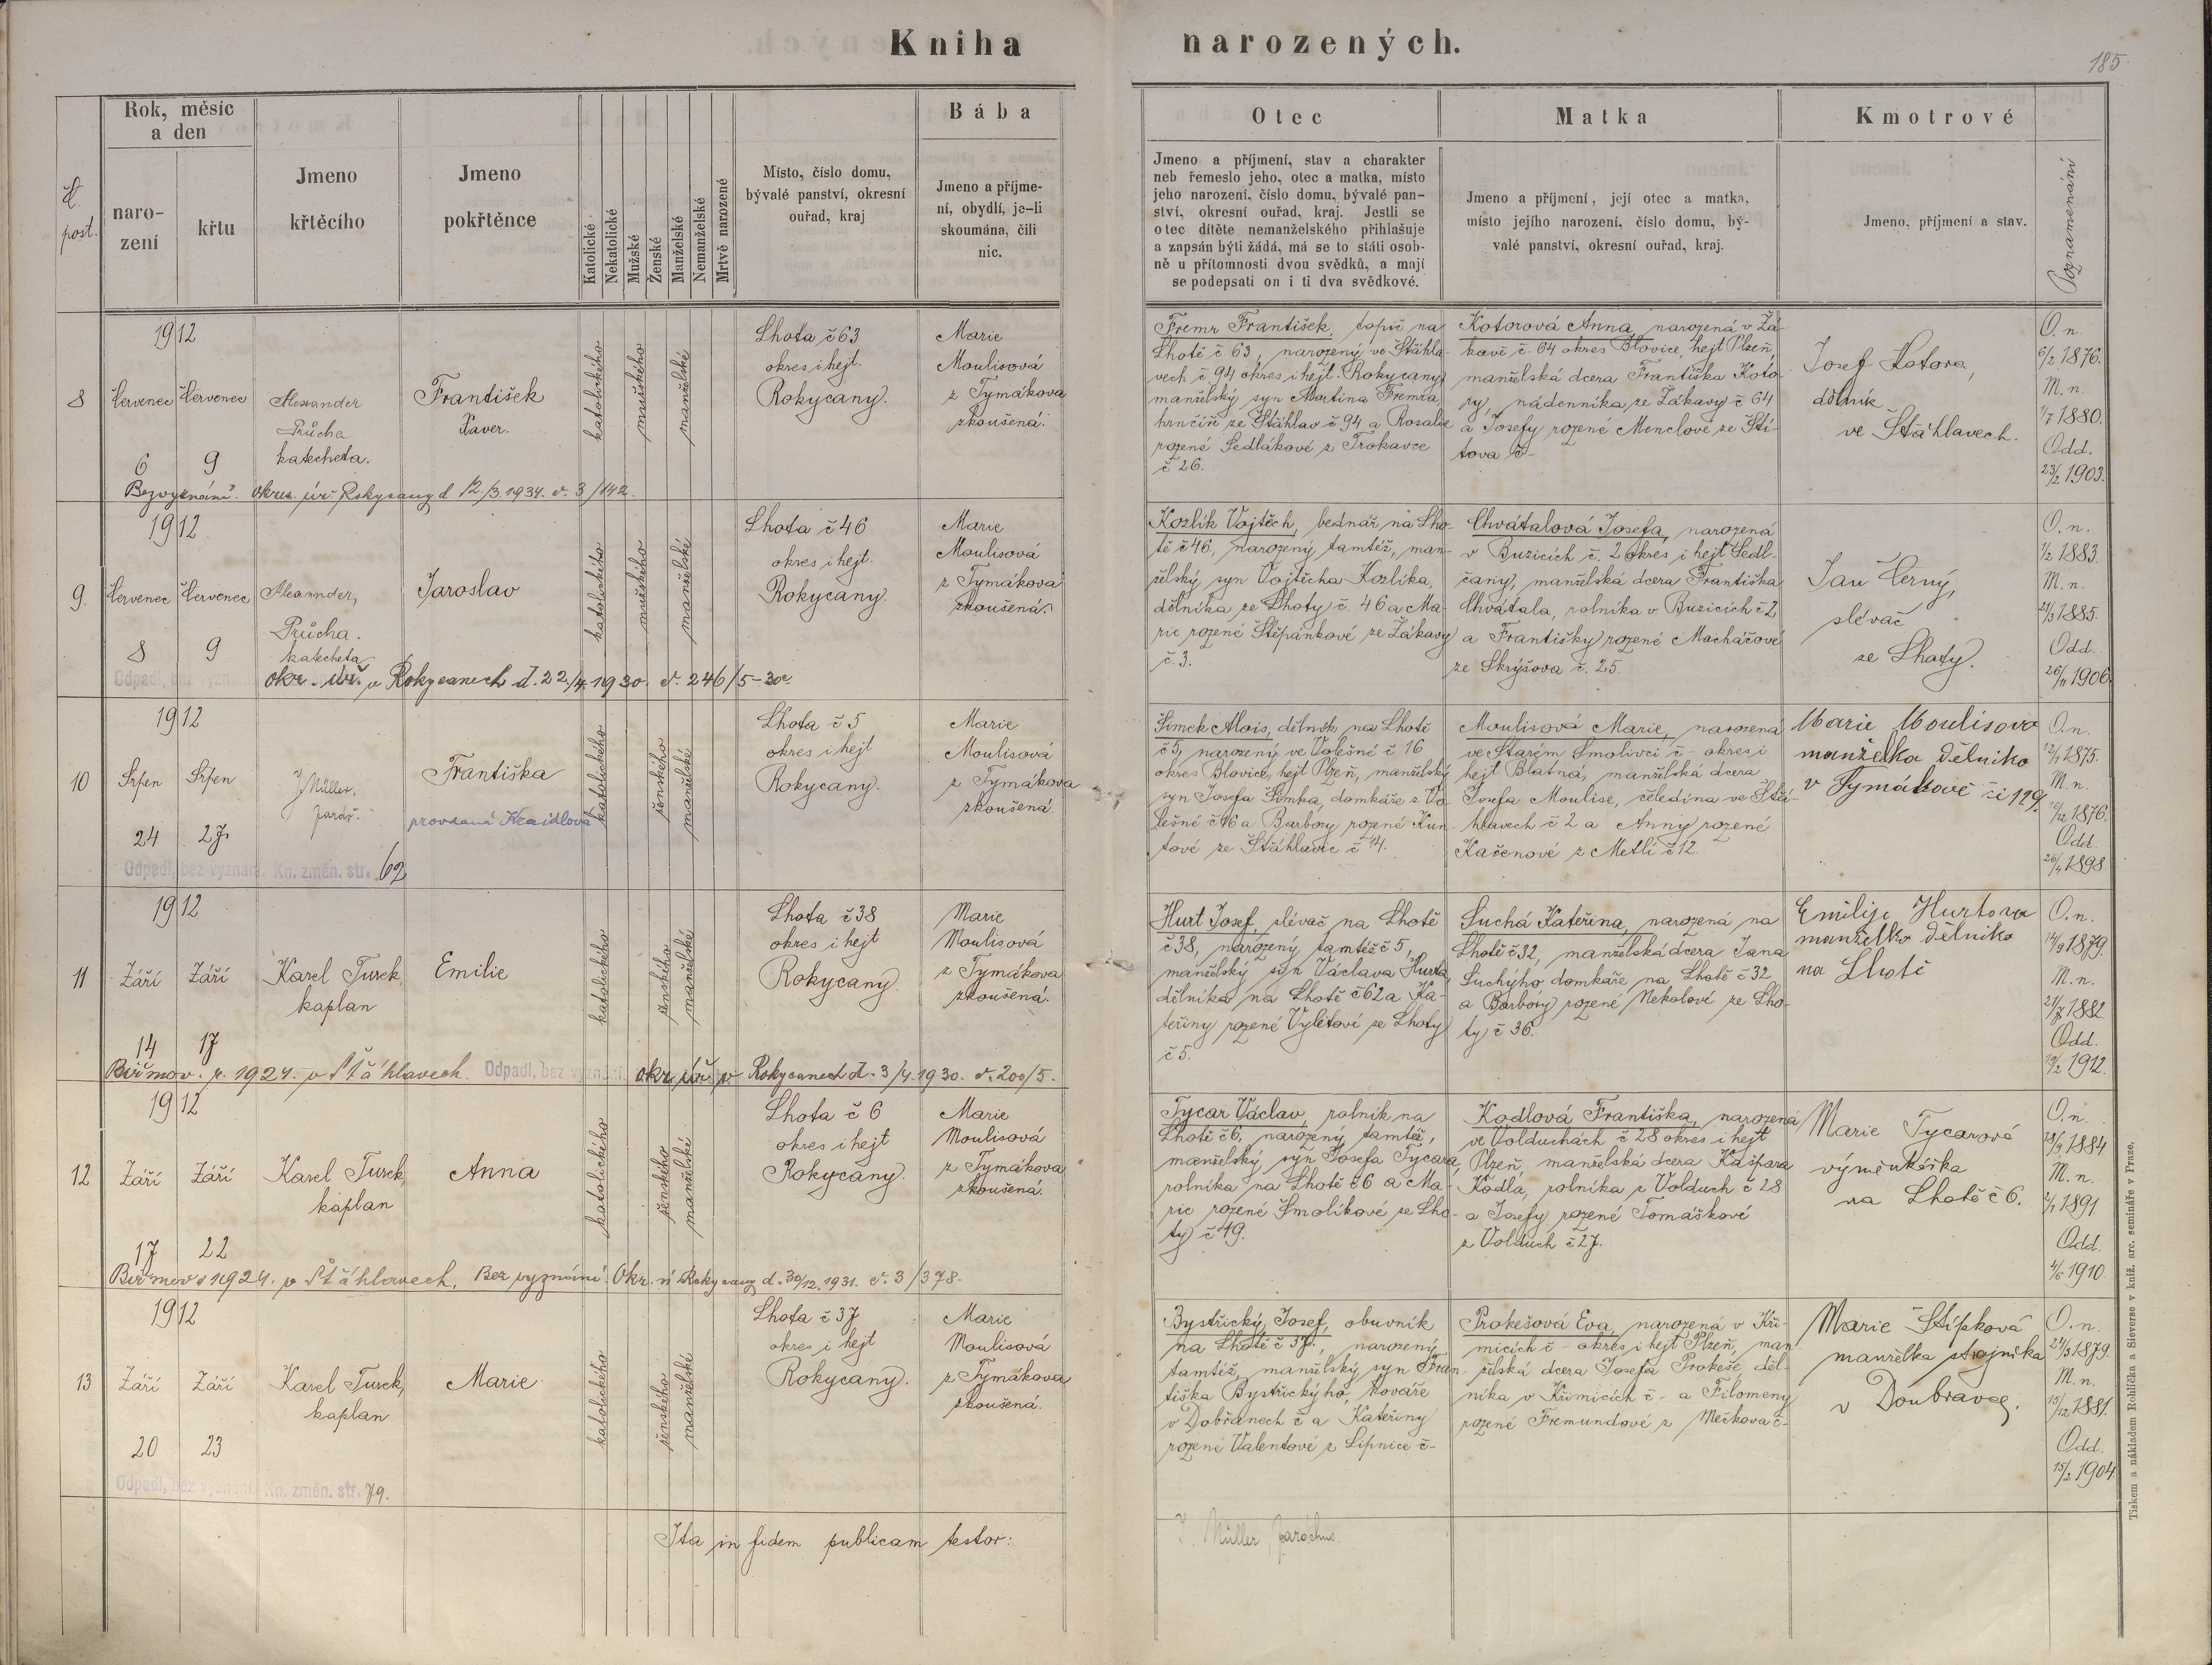 Kniha narozených.
185
Č. post.
Rok, měsíc
a den
naro-
zení
křtu
Jmeno
křtěcího
Jmeno
pokřtěnce
Katolické
Nekatolické
Mužské
Ženské
Manželské
Nemanželské
Mrtvě narozené
Místo, číslo domu,
bývalé panství, okresní
ouřad, kraj
Bába
Jmeno a příjme-
ní, obydlí, je-li
skoumána, čili
nic.
Otec
Jmeno a příjmení, stav a charakter
neb řemeslo jeho, otec a matka, místo
jeho narození, číslo domu, bývalé pan-
ství, okresní ouřad, kraj. Jestli se
otec dítěte nemanželského přihlašuje
a zapsán býti žádá, má se to státi osob-
ně u přítomnosti dvou svědků, a mají
se podepsati on i ti dva svědkové.
Matka
Jmeno a příjmení, její otec a matka,
místo jejího narození, číslo domu, bý-
valé panství, okresní ouřad, kraj.
Kmotrové
Jmeno, příjmení a stav.
Poznamenání
8
1912
červenec červenec
6 9
Alexander
Průcha
katecheta.
František
Xaver.
katolického
mužského
manželské
Lhota č 63
okres i hejt.
Rokycany.
Marie
Moulisová
z Tymákova
zkoušená.
Fremr František, topič na
Lhotě č 63, narozený ve Štáhla-
vech č 94 okres i hejt. Rokycany,
manželský syn Martina Fremra,
hrnčíře ze Štáhlav č 94 a Rosalie
rozené Sedlákové z Trokavce
č 26.
Kotorová Anna, narozená v Žá-
kavě č. 64 okres Blovice, hejt Plzeň,
manželská dcera Františka Koto-
ry, nádenníka ze Žákavy č 64
a Josefy rozené Menclové ze Ští-
tova č-
Josef Kotora,
dělník
ve Štáhlavech.
O. n.
6/2 1876.
M. n.
1/7 1880.
Odd.
23/2 1903.
Bezvyznání. okres. úř. Rokycany d 12./3.1934. č. 3/142.
9.
1912
červenec červenec
8 9
Alexander,
Průcha.
katecheta
Jaroslav
katolického
mužského
manželské
Lhota č 46
okres i hejt.
Rokycany.
Marie
Moulisová
z Tymákova
zkoušená.
Kozlík Vojtěch, bednář na Lho-
tě č 46, narozený tamtéž, man-
želský syn Vojtěcha Kozlíka,
dělníka ze Lhoty č. 46 a Ma-
rie rozené Štěpánkové ze Žákavy
č. 3.
Chvátalová Josefa, narozená
v Buzicích č. 2 okres i hejt Sedl-
čany, manželská dcera Františka
Chvátala, rolníka v Buzicích č 2
a Františky rozené Macháčové
ze Skrýšova č. 25.
Jan Černý,
slévač
ze Lhoty.
O. n.
1/2 1883.
M. n.
21/3 1885.
Odd.
26/11 1906.
Odpadl, bez vyznání okr. úř. v Rokycanech d. 22./4. 1930. č. 246/5-30
10
1912
Srpen Srpen
24 27
J Müller,
farář.
Františka
provdaná Kraidlová
katolického
ženského
manželské
Lhota č 5
okres i hejt
Rokycany.
Marie
Moulisová
z Tymákova
zkoušená.
Šimek Alois, dělník na Lhotě
č 5, narozený ve Volešné č 16
okres Blovice, hejt Plzeň, manželský
syn Josefa Šimka, domkáře z Vo-
lešné č 16 a Barbory rozené Kun-
tové ze Štáhlavic č 14.
Moulisová Marie, narozená
ve Starém Smolivci č - okres i
hejt Blatná, manželská dcera
Josefa Moulise, čeledína ve Štá-
hlavech č 2 a Anny rozené
Kačenové z Metlí č 12.
Marie Moulisova
manželka dělnika
v Tymákově č 129.
O. n.
12/1 1875.
M. n.
10/12 1876.
Odd.
26/4 1898.
Odpadl, bez vyznání. Kn. změn. str. 62
11
1912
Září Září
14 17
Karel Turek,
kaplan
Emilie
katolického
ženského
manželské
Lhota č 38
okres i hejt
Rokycany.
Marie
Moulisová
z Tymákova
zkoušená.
Hurt Josef, slévač na Lhotě
č 38, narozený tamtéž č 5,
manželský syn Václava Hurta,
dělníka na Lhotě č 62 a Ka-
teřiny rozené Výletové ze Lhoty
č 5.
Suchá Kateřina, narozená na
Lhotě č 32, manželská dcera Jana
Suchýho domkáře na Lhotě č 32
a Barbory rozené Nekolové ze Lho-
ty č 36.
Emilije Hurtova
manželka dělnika
na Lhotě
O. n.
14/9 1879.
M. n.
21/7 1882.
Odd.
19/2 1912.
Biřmov. r. 1924. v Štáhlavech. Odpadl, bez vyznání okr. úř. v Rokycanech d. 3/4. 1930. č. 200/5.
12
1912
Září Září
17 22
Karel Turek,
kaplan
Anna
katolického
ženského
manželské
Lhota č 6
okres i hejt
Rokycany.
Marie
Moulisová
z Tymákova
zkoušená.
Tycar Václav, rolník na
Lhotě č 6, narozený tamtéž,
manželský syn Josefa Tycara,
rolníka na Lhotě č 6 a Ma-
rie rozené Smolíkové ze Lho-
ty č 49.
Kodlová Františka, narozená
ve Volduchách č 28 okres i hejt
Plzeň, manželská dcera Kašpara
Kodla, rolníka z Volduch č 28
a Josefy rozené Tomáškové
z Volduch č 27.
Marie Tycarová
výměnkářka
na Lhotě č 6.
O. n.
18/9 1884
M. n.
2/1 1891.
Odd.
4/6 1910.
Biřmov. 1924. v Štáhlavech. Bez vyznání. Okr. ú Rokycany d. 30/12. 1931. č. 3/378.
13
1912
Září Září
20 23
Karel Turek,
kaplan
Marie
katolického
ženského
manželské
Lhota č 37
okres i hejt
Rokycany.
Marie
Moulisová
z Tymákova
zkoušená.
Bystřický Josef, obuvník
na Lhotě č 37, narozený
tamtéž, manželský syn Fran-
tiška Bystřickýho, kováře
v Dobřanech č a Kateřiny
rozené Valentové z Lipnice č-
Prokešová Eva, narozená v Kři-
micích č - okres i hejt Plzeň, man-
želská dcera Josefa Prokeše, děl-
níka v Křimicích č - a Filomeny
rozené Fremundové z Mečkova č-
Marie Štípková
manželka strojníka
v Doubravce.
O. n.
24/3 1879.
M. n.
15/12 1881.
Odd.
15/2 1904.
Odpadl, bez vyznání Kn. změn. str. 79.
Ita in fidem publicam testor:
J. Müller, parochus
Tiskem a nákladem Rohlíčka a Sieverse v kníž. arc. semináře v Praze.